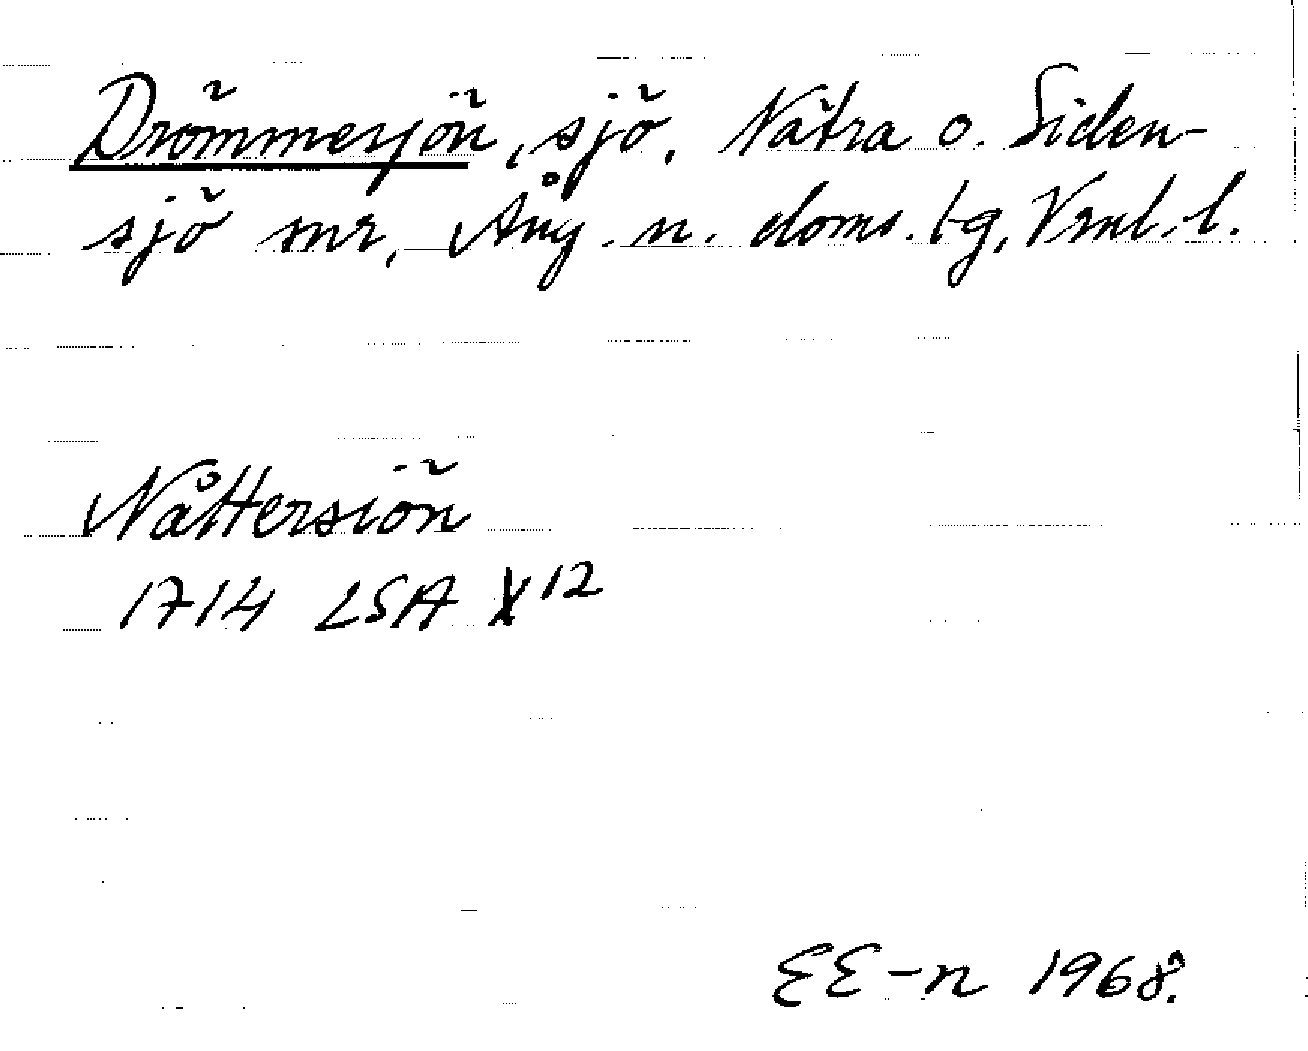 Drömmesjön, sjö, Nätra o. Siden-
sjö snr, Ång. n. doms. tg, Vrnl. l.
Nåttersiön
1714 LSA X 12
EE-n 1968.